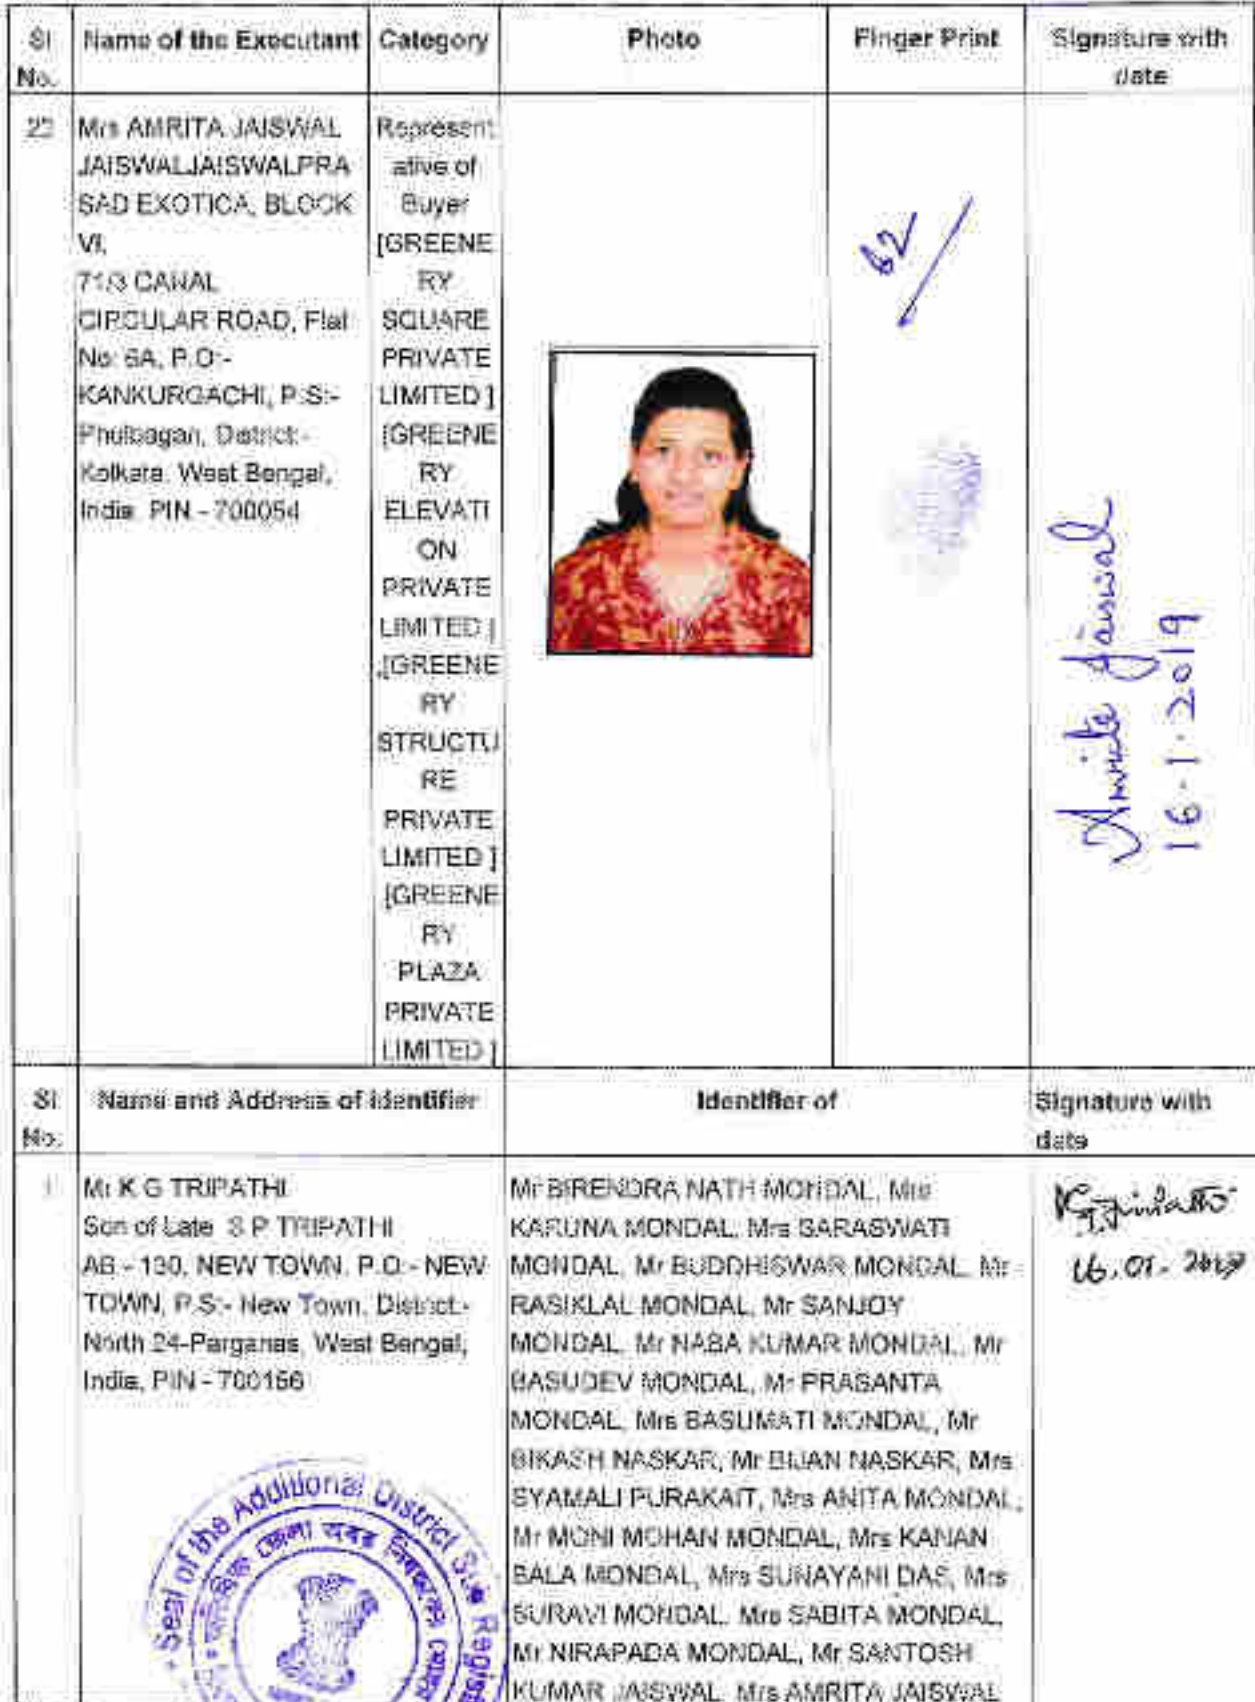 Sl No. Name of the Executant Category Photo Finger Print Signature with date
Mrs AMRITA JAISWAL
JAISWALJAISWALPRA
SAD EXOTICA, BLOCK
VI,
71/3 CANAL
CIRCULAR ROAD, Flat
No: 6A, P.O:-
KANKURGACHI, P.S:-
Phulbagan, District:-
Kolkata, West Bengal,
India, PIN - 700054
Represent
ative of
Buyer
[GREENE
RY
SQUARE
PRIVATE
LIMITED ]
[GREENE
RY
ELEVATI
ON
PRIVATE
LIMITED ]
,[GREENE
RY
STRUCTU
RE
PRIVATE
LIMITED ]
[GREENE
RY
PLAZA
PRIVATE
LIMITED ]
Amrita Jaiswal
16.1.2019
Sl No. Name and Address of identifier Identifier of Signature with date
1 Mr K G TRIPATHI
Son of Late S P TRIPATHI
AB - 130, NEW TOWN, P.O:- NEW
TOWN, P.S:- New Town, District:-
North 24-Parganas, West Bengal,
India, PIN - 700156
Mr BIRENDRA NATH MONDAL, Mrs
KARUNA MONDAL, Mrs SARASWATI
MONDAL, Mr BUDDHISWAR MONDAL, Mr
RASIKLAL MONDAL, Mr SANJOY
MONDAL, Mr NABA KUMAR MONDAL, Mr
BASUDEV MONDAL, Mr PRASANTA
MONDAL, Mrs BASUMATI MONDAL, Mr
BIKASH NASKAR, Mr BIJAN NASKAR, Mrs
SYAMALI PURAKAIT, Mrs ANITA MONDAL,
Mr MONI MOHAN MONDAL, Mrs KANAN
BALA MONDAL, Mrs SUNAYANI DAS, Mrs
SURAVI MONDAL, Mrs SABITA MONDAL,
Mr NIRAPADA MONDAL, Mr SANTOSH
KUMAR JAISWAL, Mrs AMRITA JAISWAL
Seal of the Additional District Sub Regist